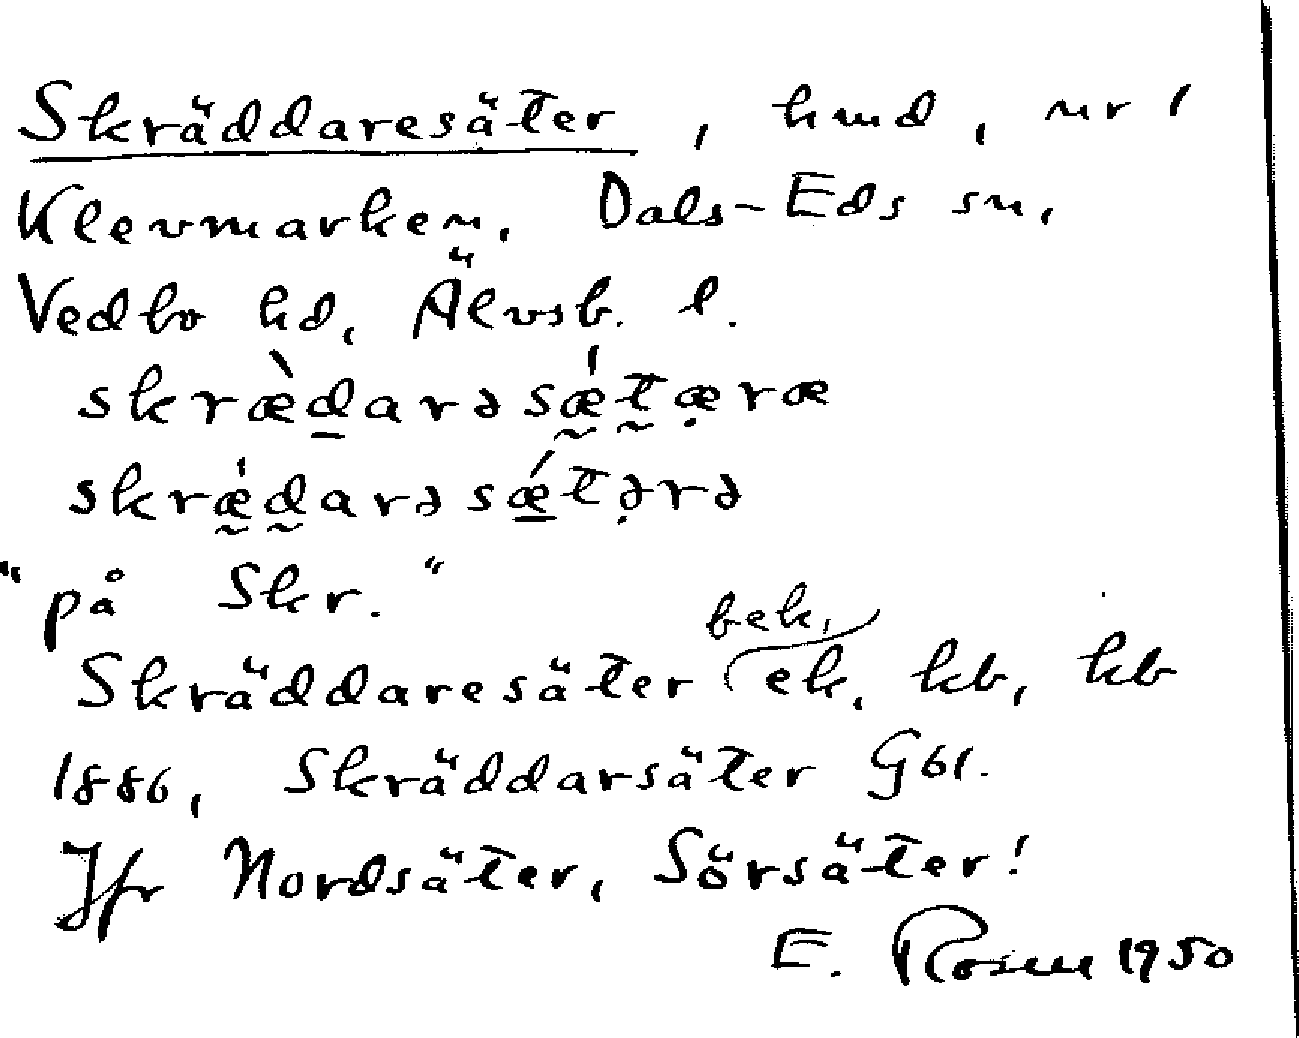 Skräddaresäter, hmd, nr 1
Klevmarken, Dals-Eds sn,
Vedbo hd, Älvsb. l.
skrædarəsǽtæ̣ræ
skrǽdarəsǽtə̣rə
"på Skr."
bek.
Skräddaresäter ek, kb, hb
1886, Skräddarsäter G61.
Jfr Nordsäter, Sörsäter!
E. Rosell 1950